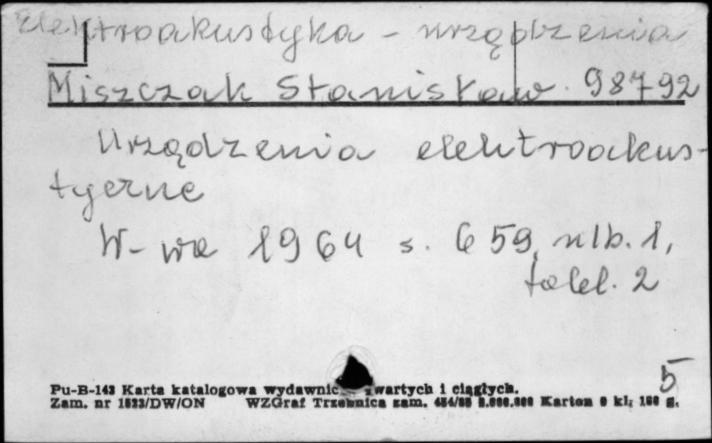 Elektroakustyka - urządzenia
Miszczak Stanisław. 98792
Urządzenia elektroakus-
tyczne
W-wa 1964 s. 659, nlb. 1,
tabl. 2
5
Pu-B-143 Karta katalogowa wydawnic wartych i ciągłych.
Zam. nr 1523/DW/ON WZGraf Trzebnica zam. Karton kl.